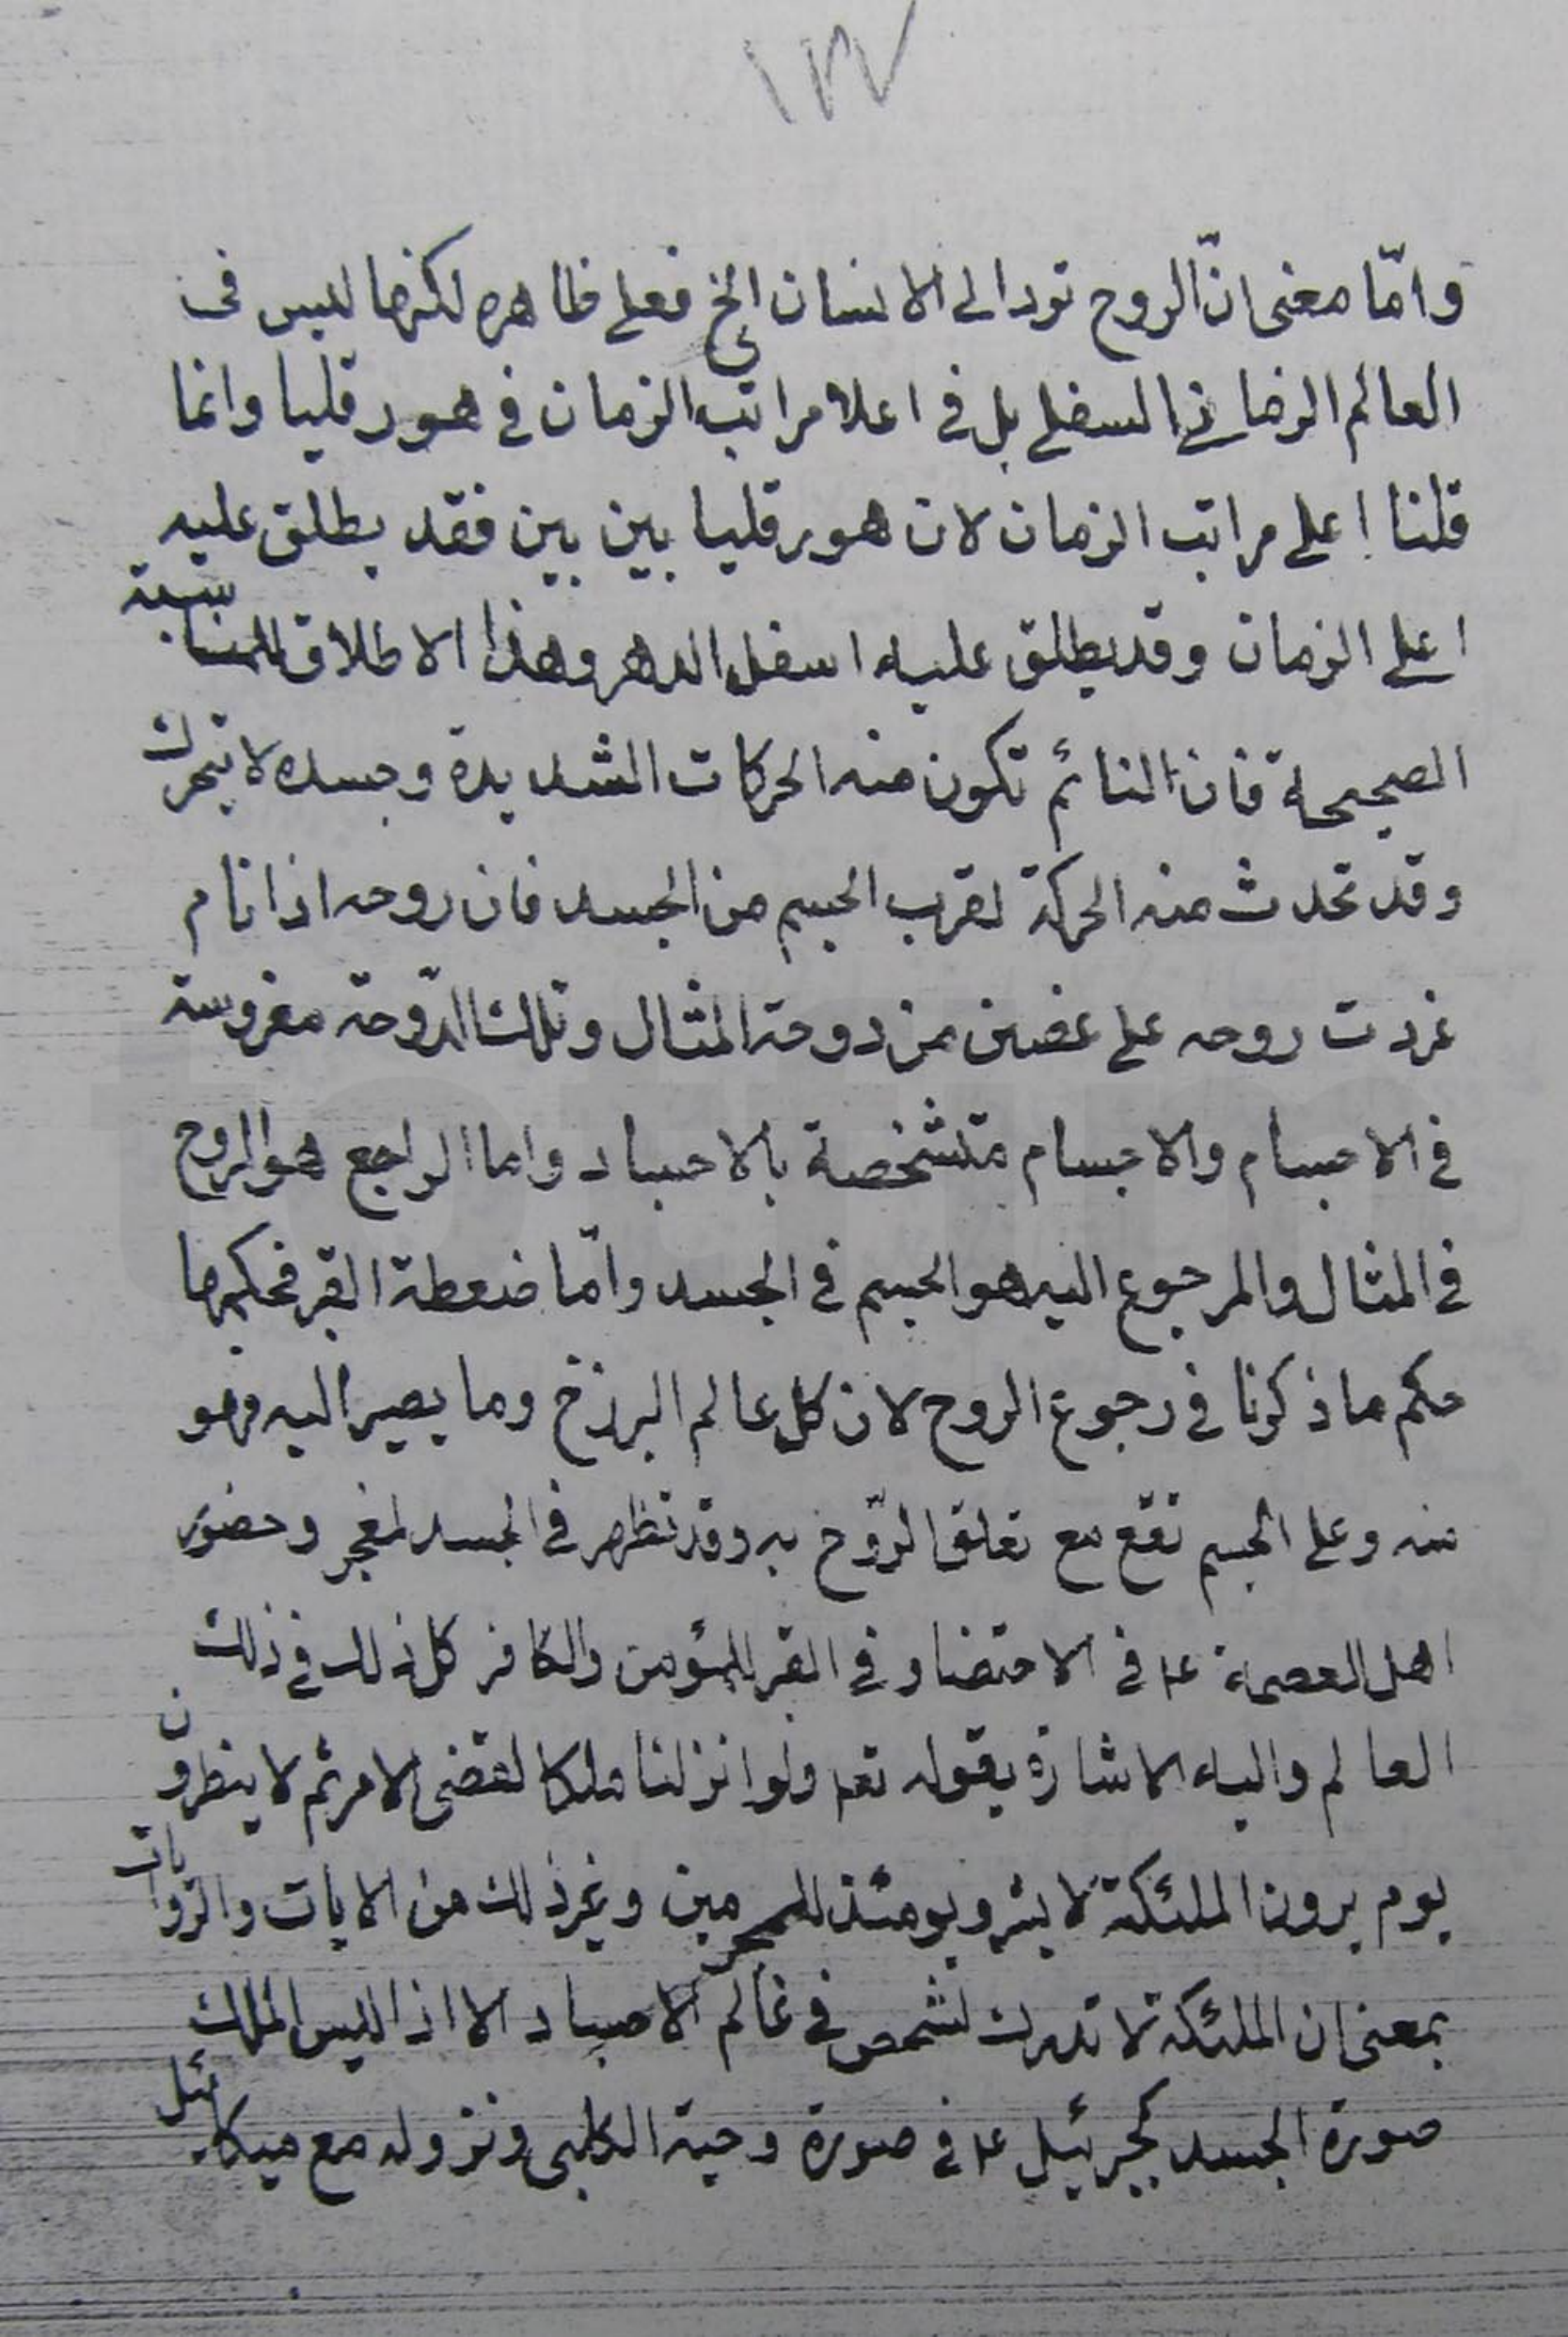 ١٣٧
وامّا معنى انّ الروح ترد الى الانسان الخ فعلى ظاهره لكنها ليس فى
العالم الزمانى السفلى بل فى اعلا مراتب الزمان فى هورقليا وانما
قلنا اعلى مراتب الزمان لان هورقليا بين بين فقد يطلق عليه
اعلى الزمان وقد يطلق عليه اسفل الدهر وهذا الاطلاق للمناسبة
الصحيحة فان النائم تكون منه الحركات الشديدة وجسده لا يتحرك
وقد تحدث منه الحركة لقرب الجسم من الجسد فان روحه اذا نام
غردت روحه على غصن من دوحة المثال وتلك الدّوحة مغروسة
فى الاجسام والاجسام متشخصة بالاجساد واما الراجع هو الروح
فى المثال والمرجوع اليه هو الجسم فى الجسد وامّا ضغطة القبر فحكمها
حكم ما ذكرنا فى رجوع الروح لان كل عالم البرزخ وما يصير اليه وهو
منه وعلى الجسم تقع مع تعلق الرّوح به وقد تظهر فى الجسد لمعجز وحضور
اهل العصمة ع‍ فى الاحتضار وفى القبر للمؤمن والكافر كل ذلك فى ذلك
العالم واليه الاشارة بقوله تعا ولو انزلنا ملكا لقضى الامر ثم لا ينظرون
يوم يرون الملئكة لا بشرى يومئذ للمجرمين وغير ذلك من الايات والروايات
بمعنى ان الملئكة لا تدرك لشخص فى عالم الاجساد الا اذا لبس الملك
صورة الجسد كجبرئيل ع‍ فى صورة دحية الكلبى ونزوله مع ميكائيل